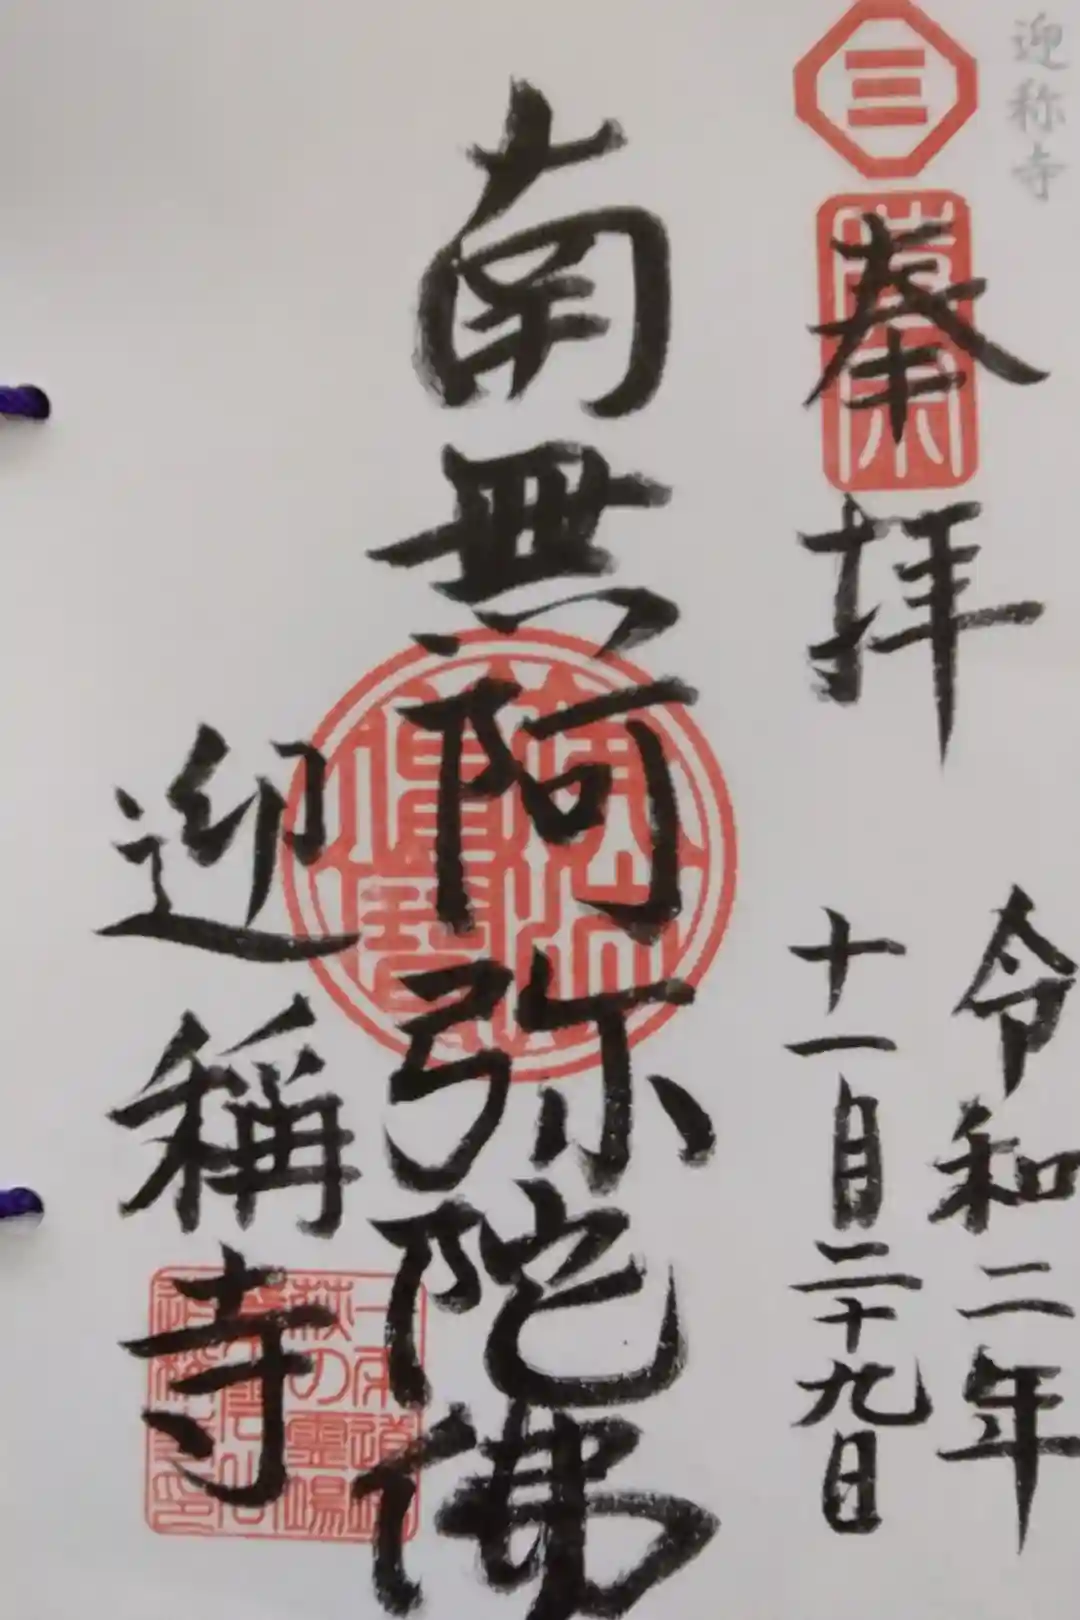 迎称寺
三
奉拝
令和二年
十一月二十九日
南無阿弥陀佛
迎稱寺